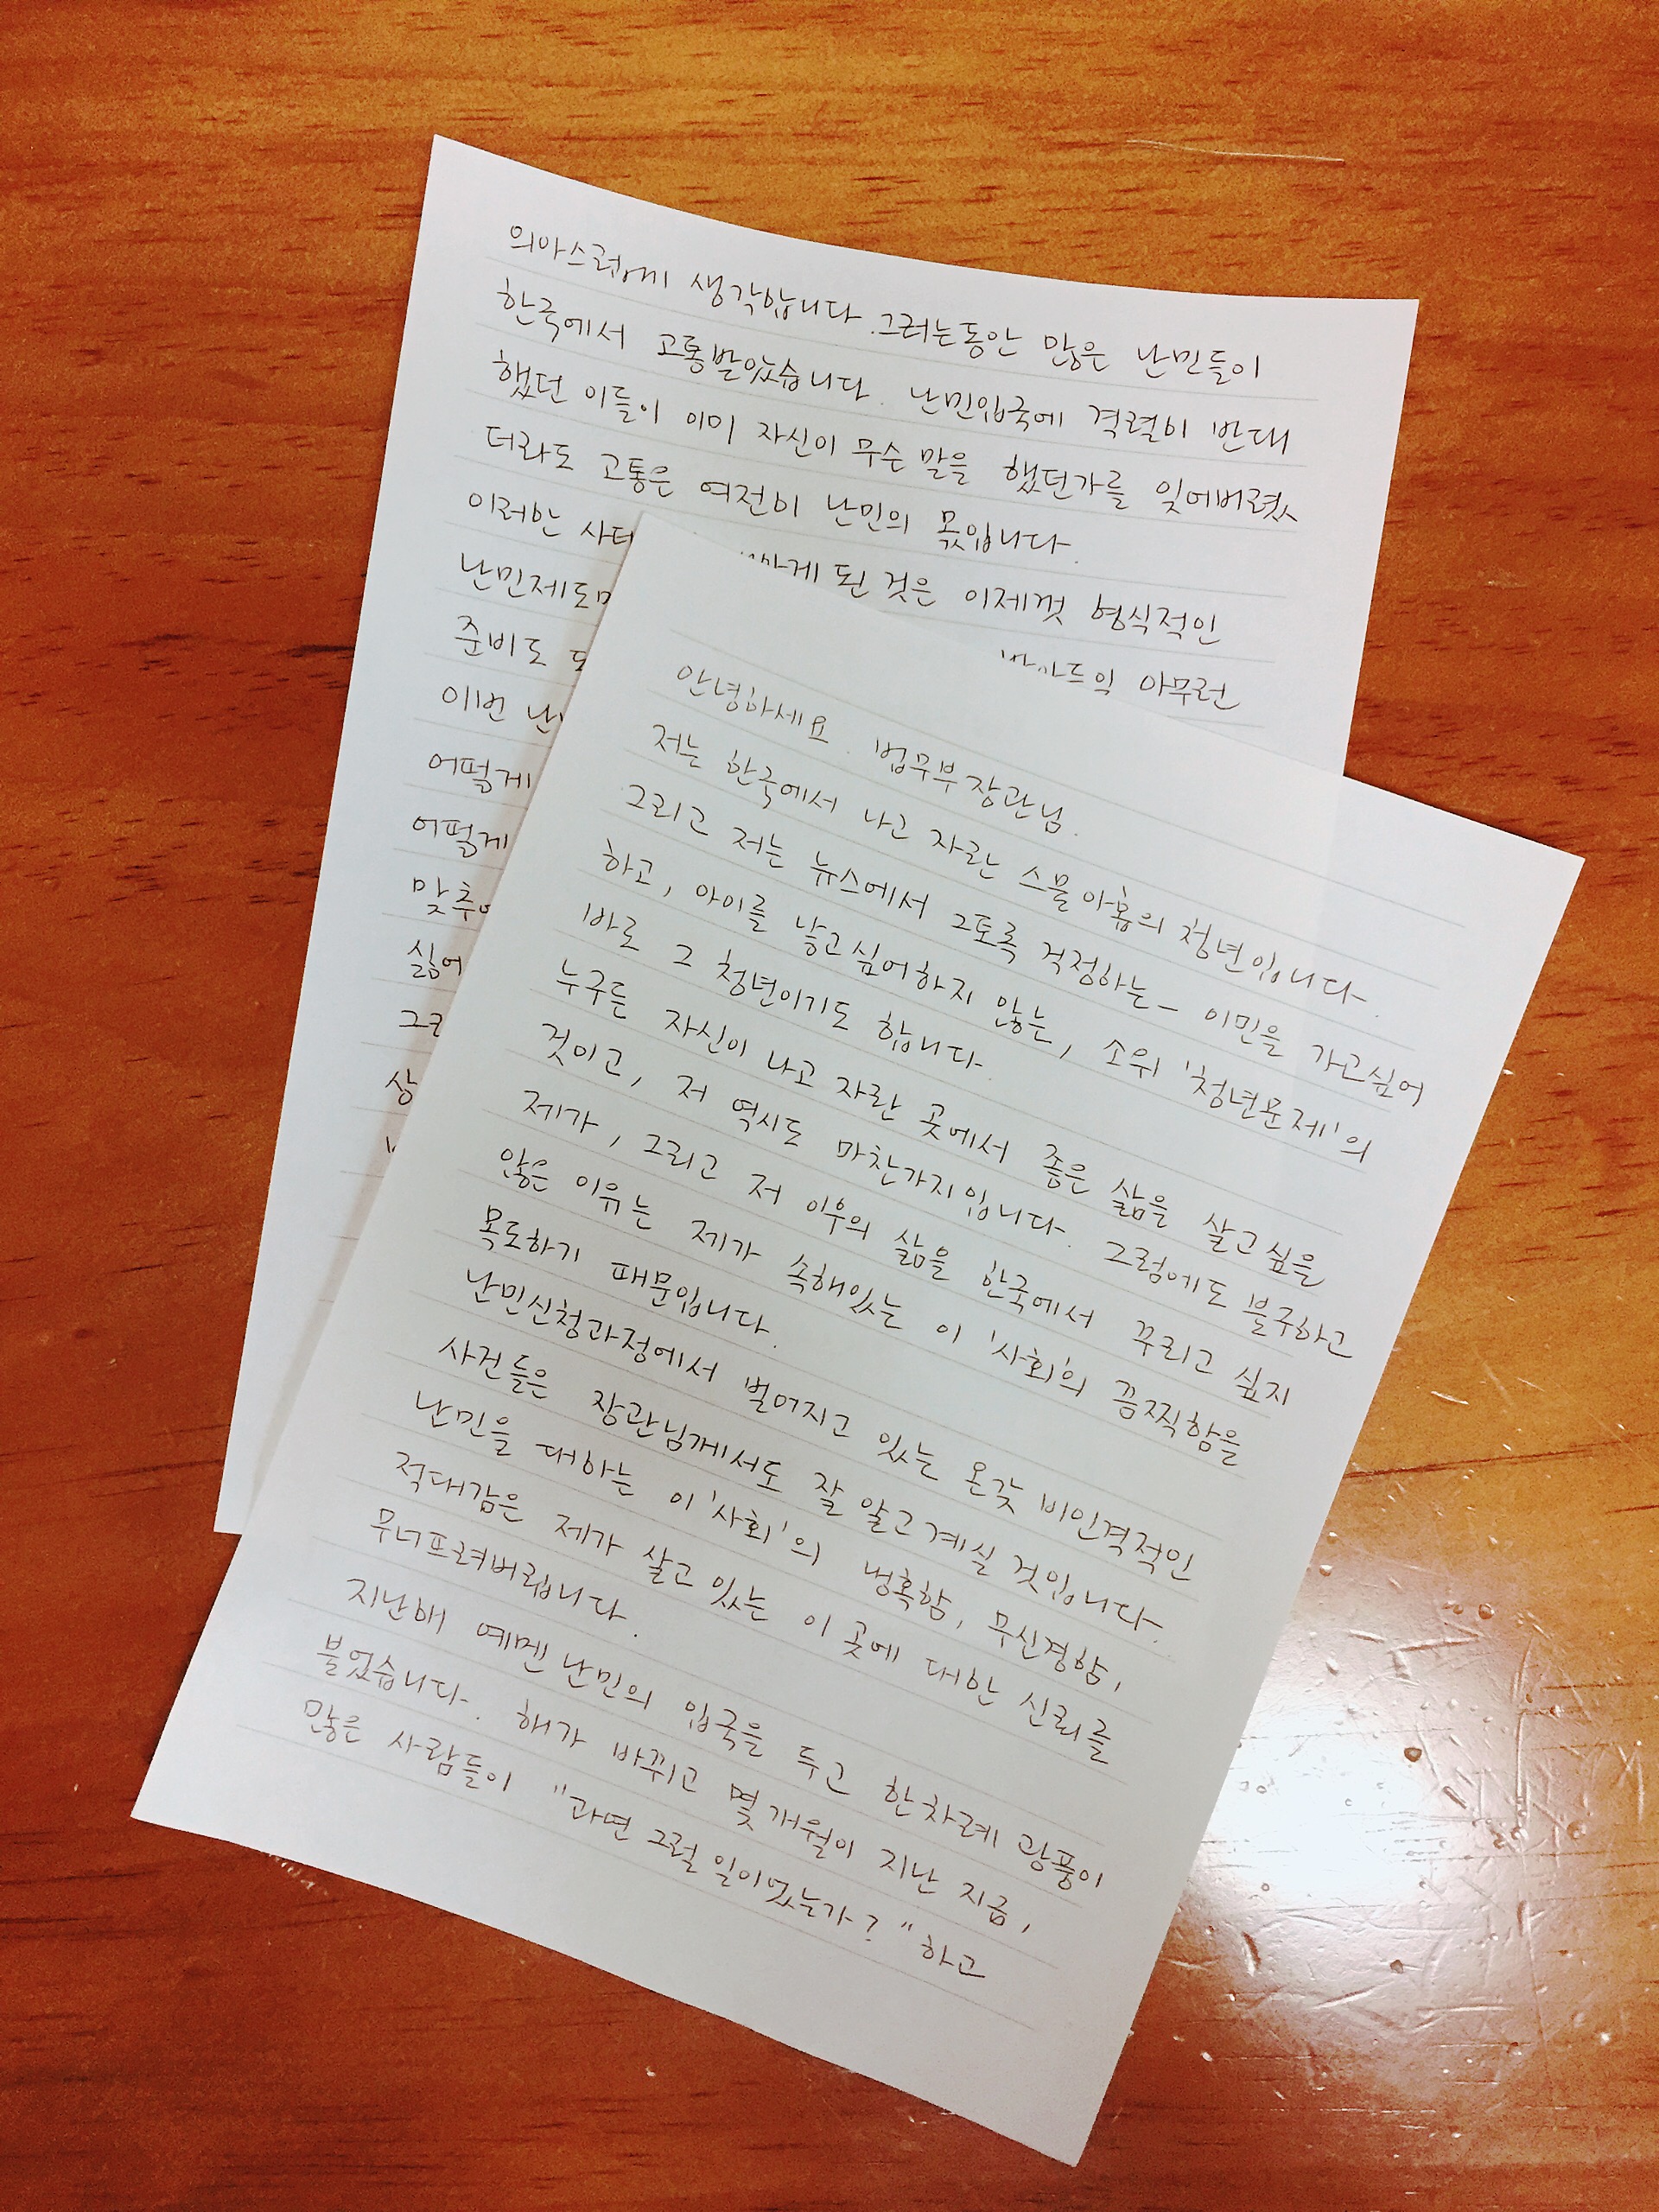 안녕하세요. 법무부장관님.
저는 한국에서 나고 자란 스물아홉의 청년입니다.
그리고 저는 뉴스에서 그토록 걱정하는- 이민을 가고싶어
하고, 아이를 낳고싶어하지 않는, 소위 '청년문제'의
바로 그 청년이기도 합니다.
누구든 자신이 나고 자란 곳에서 좋은 삶을 살고싶을
것이고, 저 역시도 마찬가지입니다. 그럼에도 불구하고
제가, 그리고 저 이후의 삶을 한국에서 꾸리고 싶지
않은 이유는 제가 속해있는 이 '사회'의 끔찍함을
목도하기 때문입니다.
난민신청과정에서 벌어지고 있는 온갖 비인격적인
사건들은 장관님께서도 잘 알고계실 것입니다.
난민을 대하는 이 '사회'의 냉혹함, 무신경함,
적대감은 제가 살고 있는 이 곳에 대한 신뢰를
무너뜨려버립니다.
지난해 예멘 난민의 입국을 두고 한차례 광풍이
불었습니다. 해가 바뀌고 몇개월이 지난 지금,
많은 사람들이 "과연 그럴 일이었는가?" 하고
의아스럽게 생각합니다. 그러는동안 많은 난민들이
한국에서 고통받았습니다. 난민입국에 격렬히 반대
했던 이들이 이미 자신이 무슨 말을 했던가를 잊어버렸
더라도 고통은 여전히 난민의 몫입니다
이러한 된 것은 이제껏 형식적인
난민제도 아무런
준비도
이번
어떻게
어떻게